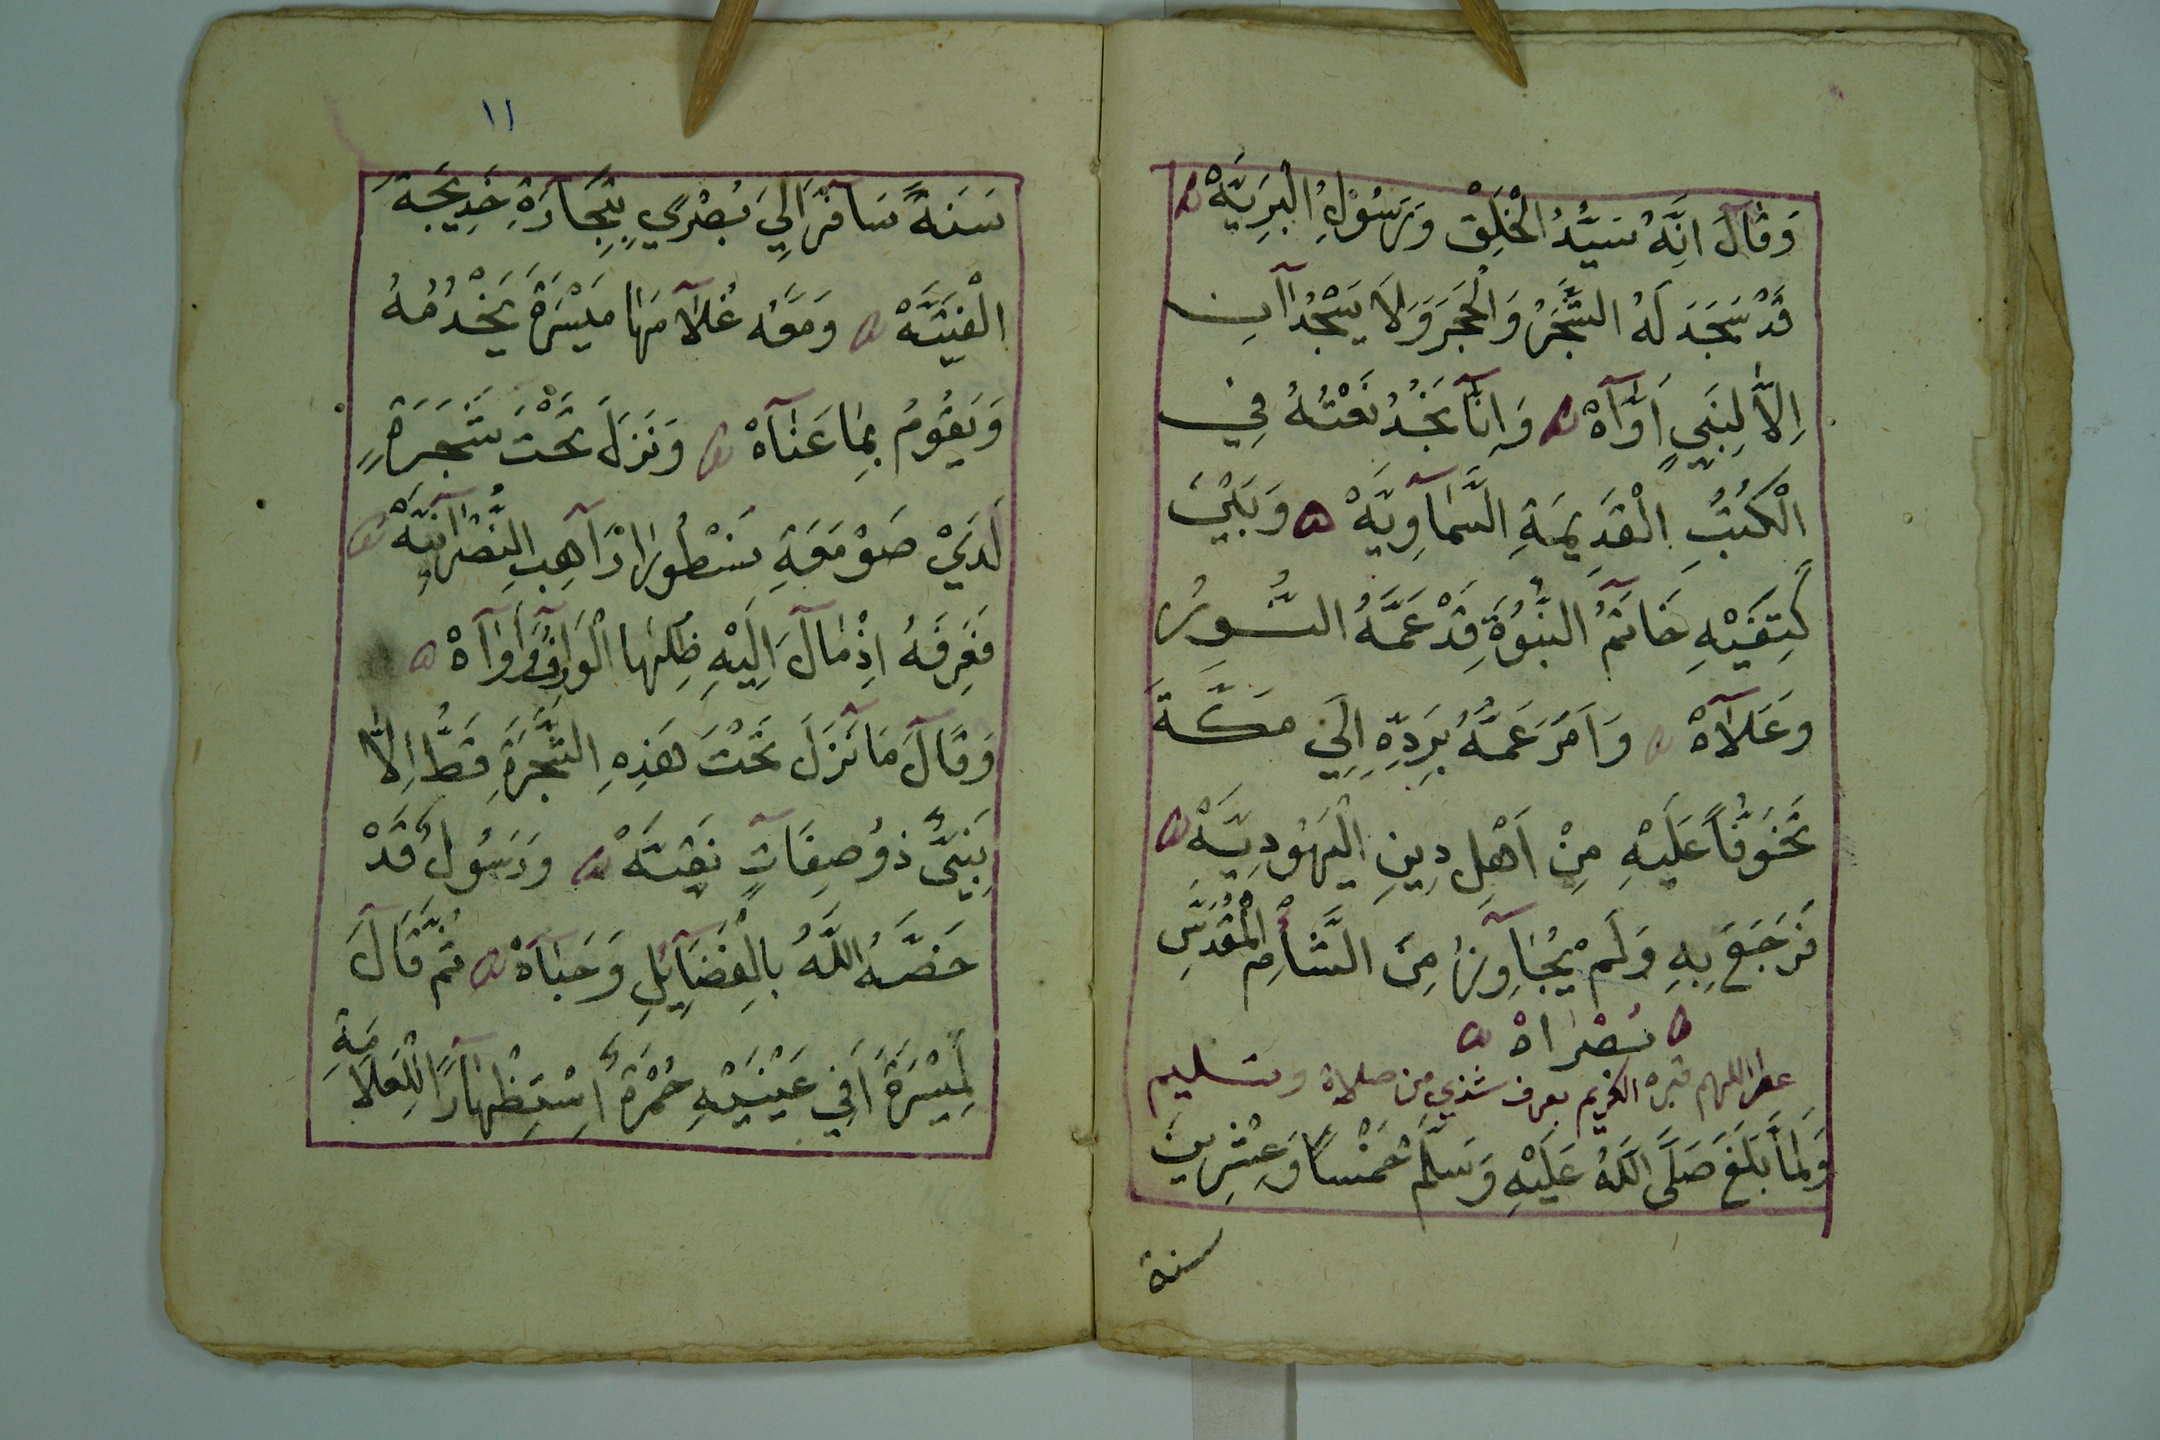 وَقَالَ اِنَّهُ سَيِّدُ الْخَلِقْ وَرَسُوْلُ الْبَرِيَّهْ ه
قَدْ سَجَدَ لَهُ الشَّجَرُ وَالْحَجَرَ وَلَا يَسْجُدَانِ
اِلاَّ لِنَبِيٍ اَوَّآهْ ه وَاِنَّا نَجَدُ نَعْتُهُ فِي
الْكُتُبِ الْقَدِيمَةِ السَّمَاوِيَّهْ ه وَبَيْنَ
كَتِفَيْهِ خَاتَمُ النُّبُوَّةِ قَدْ عَمَّهُ النُّورُ
وَعَلَاهْ ه وَاَمَرَ عَمَّهُ بِرَدِّهِ اِلَي مَكَّةَ
تَخَوُّفاً عَلَيْهِ مِنْ اَهْلِ دِينِ الْيَهُودِيَّهْ ه
فَرَجَعَ بِهِ وَلَمْ يُجَاوِزْ مِنَ الشَّأمِ الْمُقَدَّسِ
ه بُصْرَاهْ ه
عطر اللهم قبره الكريم بعرف شذي من صلاة وتسليم
وَلَمَّا بَلَغَ صَلَّى اللَّهُ عَلَيْهِ وَسَلَّمَ خَمْساً وَعِشْرِينَ
سنة
١١
سَنَةً سَافَرَ اِلَيَ بُصْرَي بِتِجَارَةِ خَدِيجَةَ
الْفَتِيَّهْ ه وَمَعَهُ غُلَامُهَا مَيْسَرَةَ يَخْدُمُهُ
وَيَقُومُ بِمَا عَنَاهْ ه وَنَزَلَ تَحْتَ شَجَرَةٍ
لَدَيْ صَوْمَعَةِ نَسْطُورَا رَاهِبِ النَّصْرَانِيَّهْ ه
فَعَرَفَهُ اِذْ مَالَ اِلَيْهِ ظِلُّهَا الْوَارِفُ وَاَوَاهْ ه
وَقَالَ مَا نَزَلَ تَحْتَ هَذِهِ الشَّجَرَةِ قَطُّ اِلاَّ
نَبِيٌّ ذُو صِفَاتٍ نَقِيَّهْ ه وَرَسُولٌ قَدْ
خَصَّهُ اللَّهُ بِالْفَضَآئِلِ وَحَبَاهْ ه ثُمَّ قَالَ
لِمَيْسَرَةَ اَفِي عَيْنَيْهِ حُمْرَةٌ اِسْتِظْهَارًا لِلْعَلَامَةِ